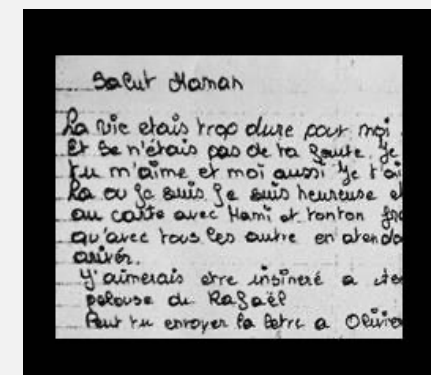 Salut Maman
La vie etais trop dure pour moi.
Et se n'étais pas de ta faute. Je
tu m'aime et moi aussi Je t'ai
La ou Je suis Je suis heureuse e
au coté avec Mami et tonton fra
qu'avec tous les autre en atenda
arivér.
J'aimerais etre insineré a
pelouse de Rafaël
Peut tu envoyer la letre a Olivie